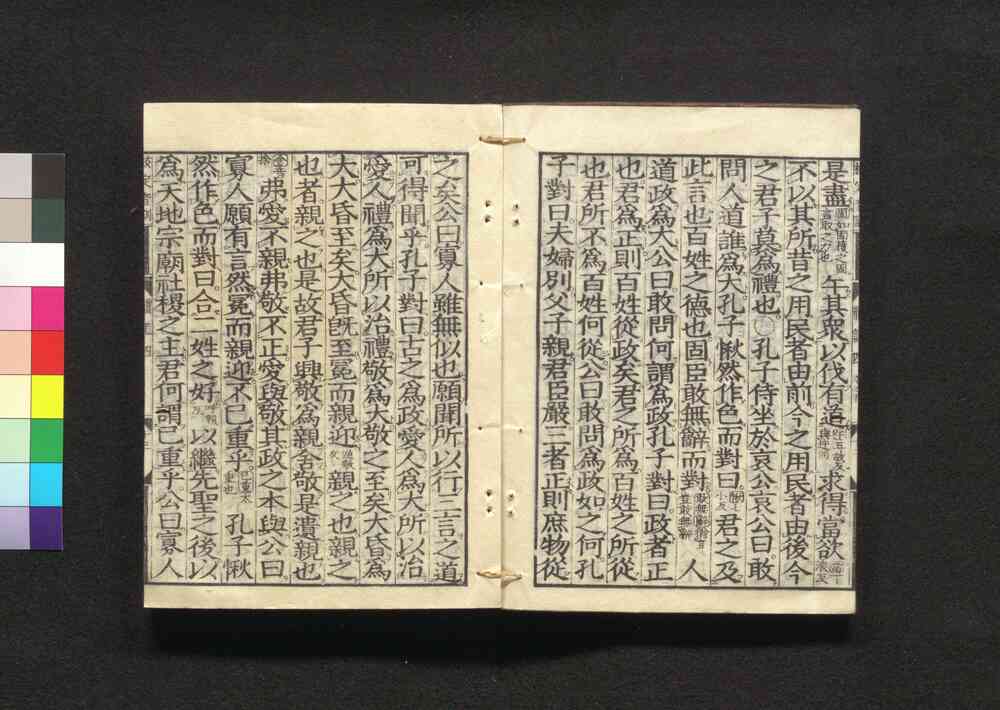 是盡午其衆以伐有道求得當欲
不以其所昔之用民者由前今之用民者由後今
之君子莫為禮也孔子侍坐於哀公哀公曰敢
問人道誰為大孔子愀然作色而對曰君之及
此言也百姓之德也固臣敢無辭而對人
道政為大公曰敢問何謂為政孔子對曰政者正
也君為正則百姓從政矣君之所為百姓之所從
也君所不為百姓何從公曰敢問為政如之何孔
子對曰夫婦別父子親君臣嚴三者正則庶物從
之矣公曰寡人雖無似也願聞所以行三言之道
可得聞乎孔子對曰古之為政愛人為大所以治
愛人禮為大所以治禮敬為大敬之至矣大昏為
大大昏至矣大昏旣至冕而親迎親之也親之
也者親之也是故君子興敬為親舍敬是遺親也
弗愛不親弗敬不正愛與敬其政之本與公曰
寡人願有言然冕而親迎不已重乎孔子愀
然作色而對曰合二姓之好以繼先聖之後以
為天地宗廟社稷之主君何謂已重乎公曰寡人